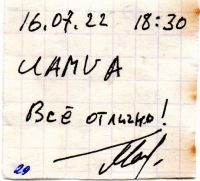 16.07.22 18:30
Всё отлично!
29